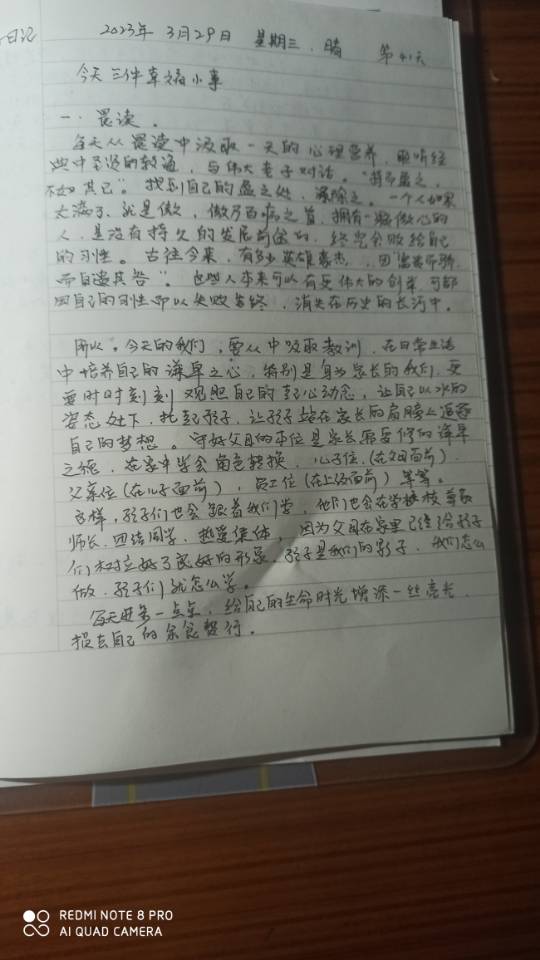 日记
2023年 3月29日 星期三、晴 第41天
今天三件幸福小事
一、晨读。
每天从晨读中汲取一天的心理营养，聆听经
典中圣贤的教诲，与伟大老子对话。“持而盈之，
不如其已”。找到自己的盈之处，消除之。一个人如果
太满了，就是傲，傲乃百病之首，拥有一颗傲心的
人，是没有持久的发展前途的，终究会败给自己
的习性。古往今来，有多少英雄豪杰，因“富贵而骄，
而自遗其咎”。这些人本来可以有更伟大的创举，可都
因自己的习性而以失败告终，消失在历史的长河中。
所以，今天的我们，要从中吸取教训，在日常生活
中培养自己的谦卑之心，特别是身为家长的我们，更
要时时刻刻观照自己的起心动念，让自己以水的
姿态处下，托起孩子，让孩子站在家长的肩膀上追逐
自己的梦想。守好父母的本位是家长需要修的谦卑
之德，在家中学会角色转换，儿子位（在父母面前）
父亲位（在儿子面前），员工位（在上级面前）等等。
这样，孩子们也会跟着我们学，他们也会在学校尊敬
师长、团结同学、热爱集体，因为父母在家里已经给孩子
们树立好了良好的形象。孩子是我们的影子，我们怎么
做，孩子们就怎么学。
每天进步一点点，给自己的生命时光增添一丝亮光，
损去自己的余食赘行。
REDMI NOTE 8 PRO
AI QUAD CAMERA